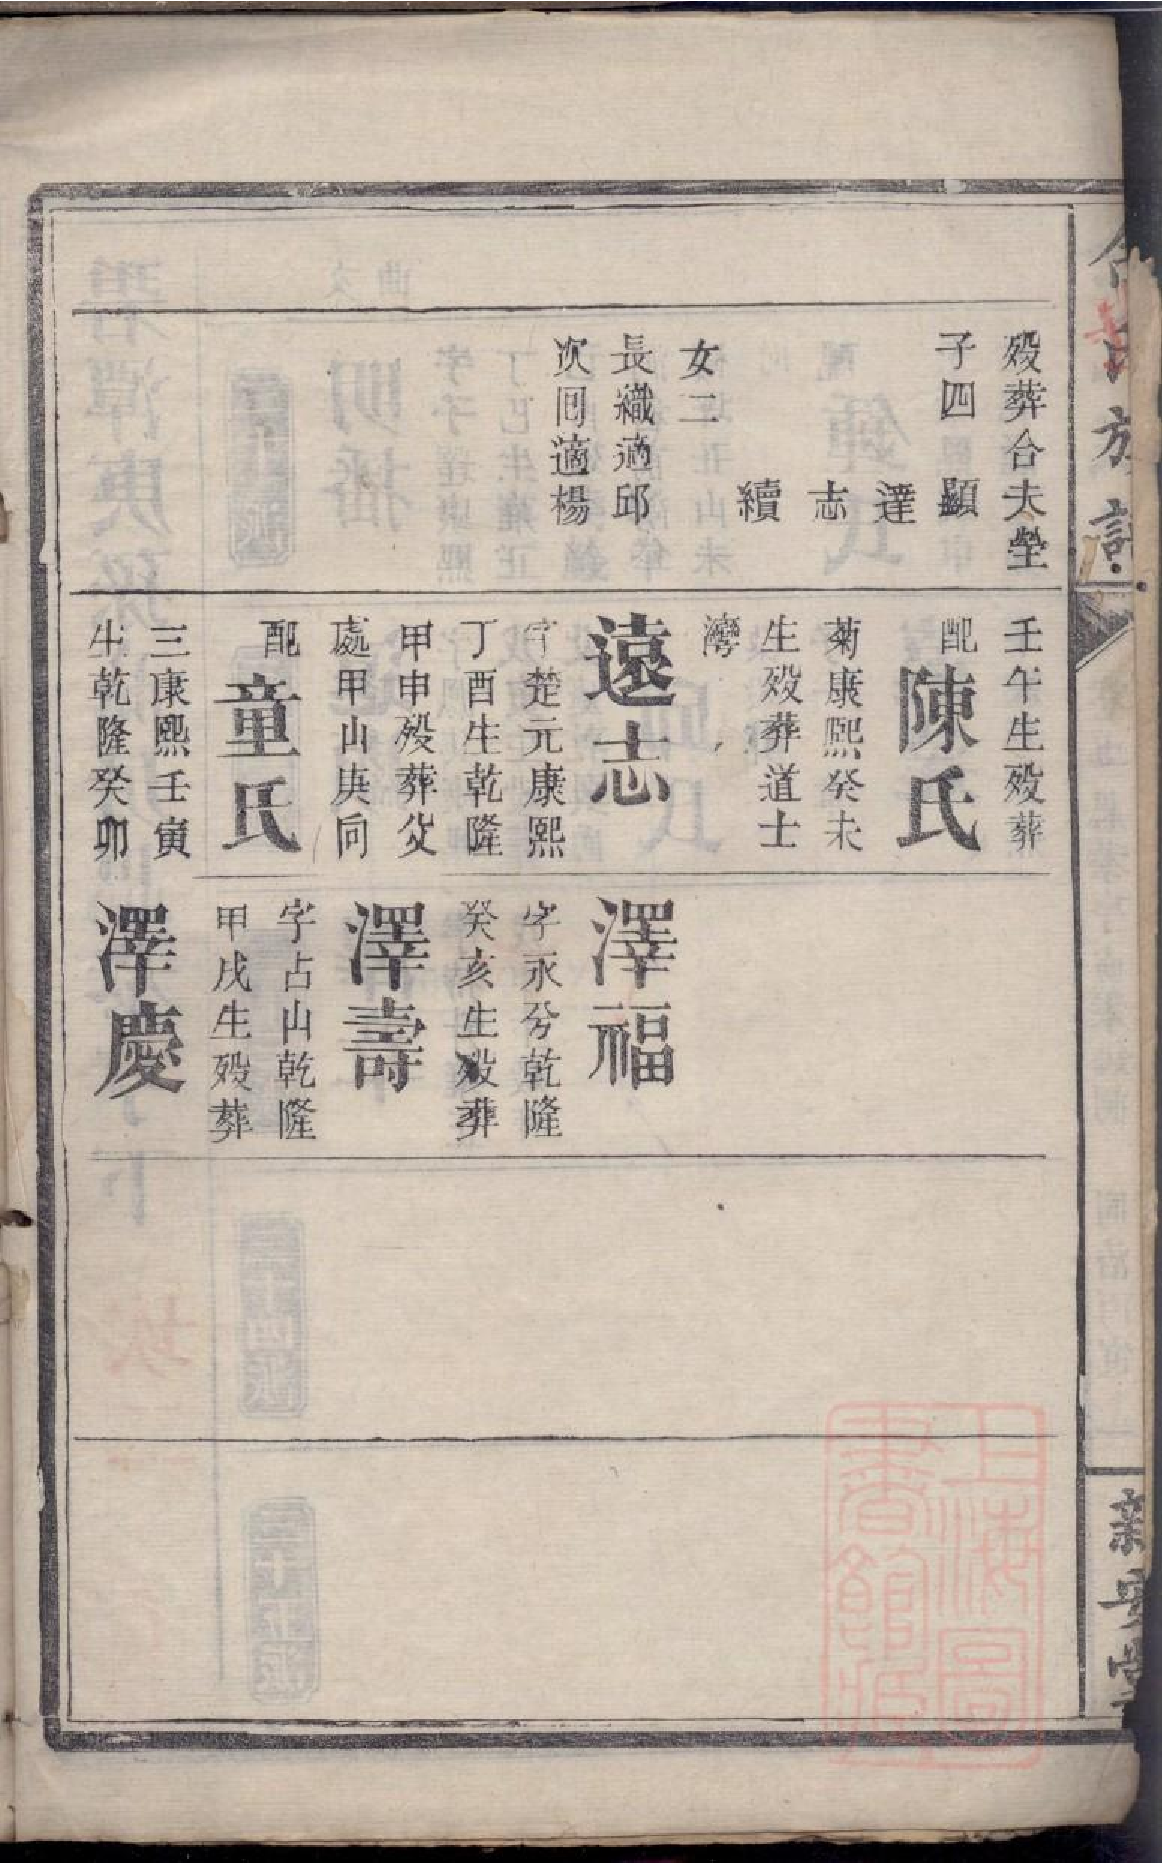 族譜
新安堂
歿葬合夫塋
子四　顯
達
志
續
女二
長織適邱
次囘適楊
壬午生歿葬
配陳氏
菊康熙癸未
生歿葬道士
灣
遠志
字楚元康熙
丁酉生乾隆
甲申歿葬父
處甲山庚向
配童氏
三康熙壬寅
生乾隆癸卯
澤福
字永兮乾隆
癸亥生歿葬
澤壽
字占山乾隆
甲戌生歿葬
澤慶
上海圖
書館藏